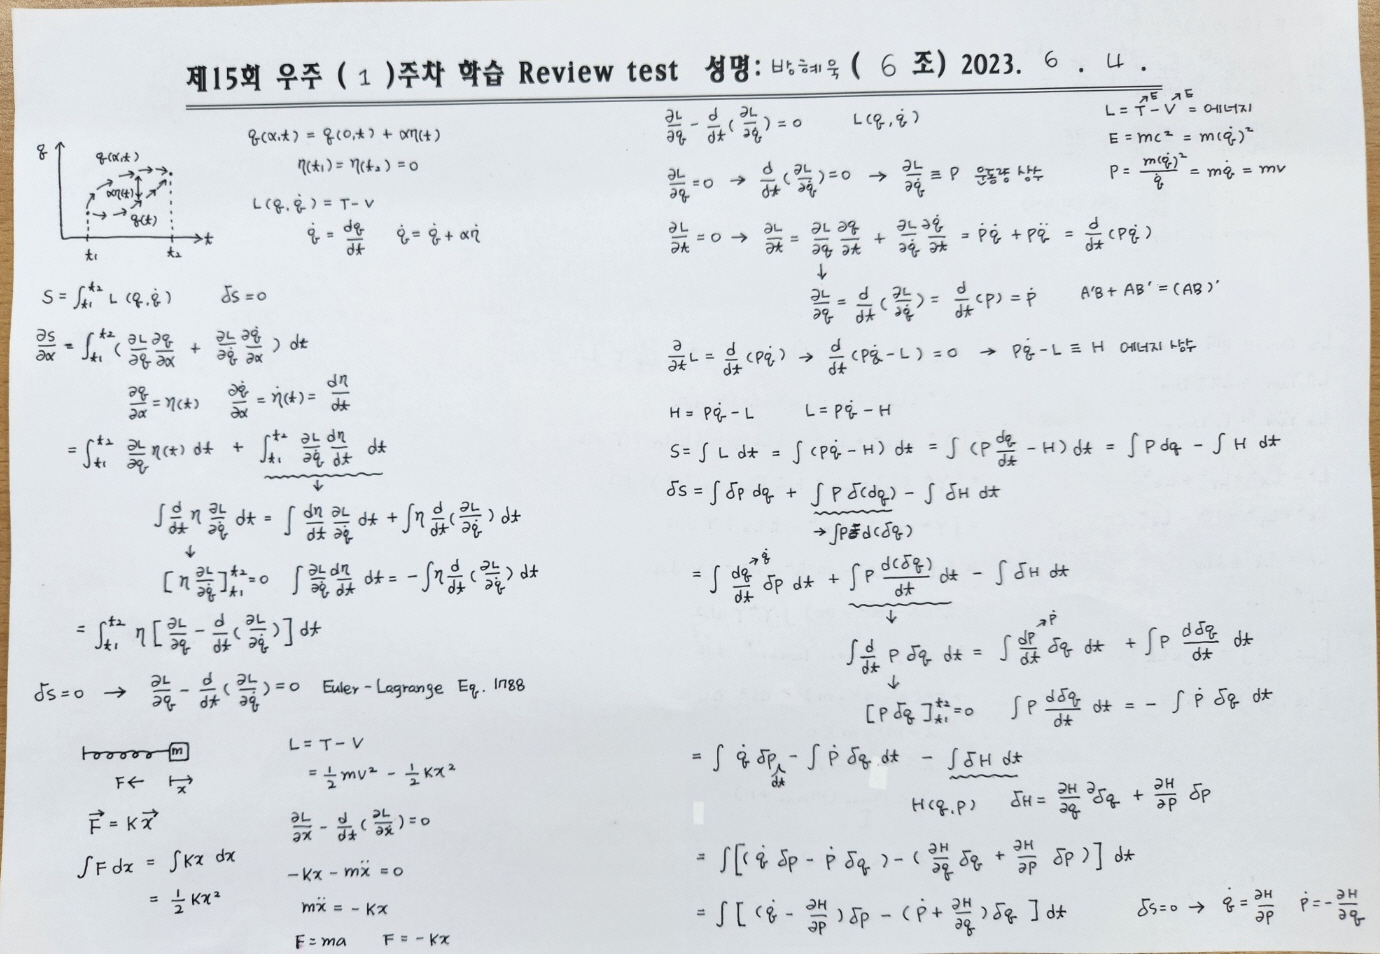 제15회 우주 ( 1 )주차 학습 Review test 성명: 방혜욱 ( 6 조) 2023. 6 . 4 .
q
q(α,t)
αη(t)
q(t)
t₁ t₂ t
q(α,t) = q(0,t) + αη(t)
η(t₁) = η(t₂) = 0
L(q, q̇) = T - V
q̇ = dq/dt q̇ = q̇ + αη̇
S = ∫_{t₁}^{t₂} L (q, q̇) δS = 0
∂S/∂α = ∫_{t₁}^{t₂} (∂L/∂q ∂q/∂α + ∂L/∂q̇ ∂q̇/∂α) dt
∂q/∂α = η(t) ∂q̇/∂α = η̇(t) = dη/dt
= ∫_{t₁}^{t₂} ∂L/∂q η(t) dt + ∫_{t₁}^{t₂} ∂L/∂q̇ dη/dt dt
↓
∫ d/dt η ∂L/∂q̇ dt = ∫ dη/dt ∂L/∂q̇ dt + ∫ η d/dt (∂L/∂q̇) dt
↓
[η ∂L/∂q̇]_{t₁}^{t₂} = 0 ∫ ∂L/∂q̇ dη/dt dt = - ∫ η d/dt (∂L/∂q̇) dt
= ∫_{t₁}^{t₂} η [∂L/∂q - d/dt (∂L/∂q̇)] dt
δS = 0 → ∂L/∂q - d/dt (∂L/∂q̇) = 0 Euler-Lagrange Eq. 1788
m
F← x
F⃗ = K x⃗
∫ F dx = ∫ Kx dx
= 1/2 Kx²
L = T - V
= 1/2 mv² - 1/2 Kx²
∂L/∂x - d/dt (∂L/∂ẋ) = 0
-Kx - mẍ = 0
mẍ = -Kx
F = ma F = -Kx
∂L/∂q - d/dt (∂L/∂q̇) = 0 L(q, q̇)
L = T - V = 에너지
↗E ↗E
E = mc² = m(q̇)²
P = m(q̇)²/q̇ = mq̇ = mv
∂L/∂q = 0 → d/dt (∂L/∂q̇) = 0 → ∂L/∂q̇ ≡ P 운동량 상수
∂L/∂t = 0 → ∂L/∂t = ∂L/∂q ∂q/∂t + ∂L/∂q̇ ∂q̇/∂t = ṗq̇ + pq̈ = d/dt (pq̇)
↓
∂L/∂q = d/dt (∂L/∂q̇) = d/dt (p) = ṗ A'B + AB' = (AB)'
∂/∂t L = d/dt (pq̇) → d/dt (pq̇ - L) = 0 → pq̇ - L ≡ H 에너지 상수
H = pq̇ - L L = pq̇ - H
S = ∫ L dt = ∫ (pq̇ - H) dt = ∫ (p dq/dt - H) dt = ∫ p dq - ∫ H dt
δS = ∫ δp dq + ∫ p δ(dq) - ∫ δH dt
→ ∫ p d(δq)
= ∫ dq/dt δp dt + ∫ p d(δq)/dt dt - ∫ δH dt
↗q̇
↓
∫ d/dt p δq dt = ∫ dp/dt δq dt + ∫ p dδq/dt dt
↗ṗ
↓
[p δq]_{t₁}^{t₂} = 0 ∫ p dδq/dt dt = - ∫ ṗ δq dt
= ∫ q̇ δp dt - ∫ ṗ δq dt - ∫ δH dt
H(q,p) δH = ∂H/∂q ∂δq + ∂H/∂p δp
= ∫ [(q̇ δp - ṗ δq) - (∂H/∂q δq + ∂H/∂p δp)] dt
= ∫ [(q̇ - ∂H/∂p) δp - (ṗ + ∂H/∂q) δq] dt δS = 0 → q̇ = ∂H/∂p ṗ = -∂H/∂q